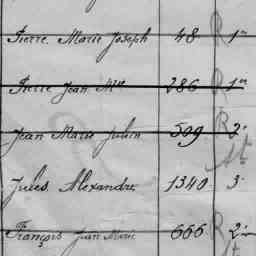 Pierre Marie Joseph 48 R 1er
Pierre Jean Mie 286 R 1er
Jean Marie Julien 509 R 2e
Jules Alexandre 1340 3e
François Jean Marie 666 R 2e